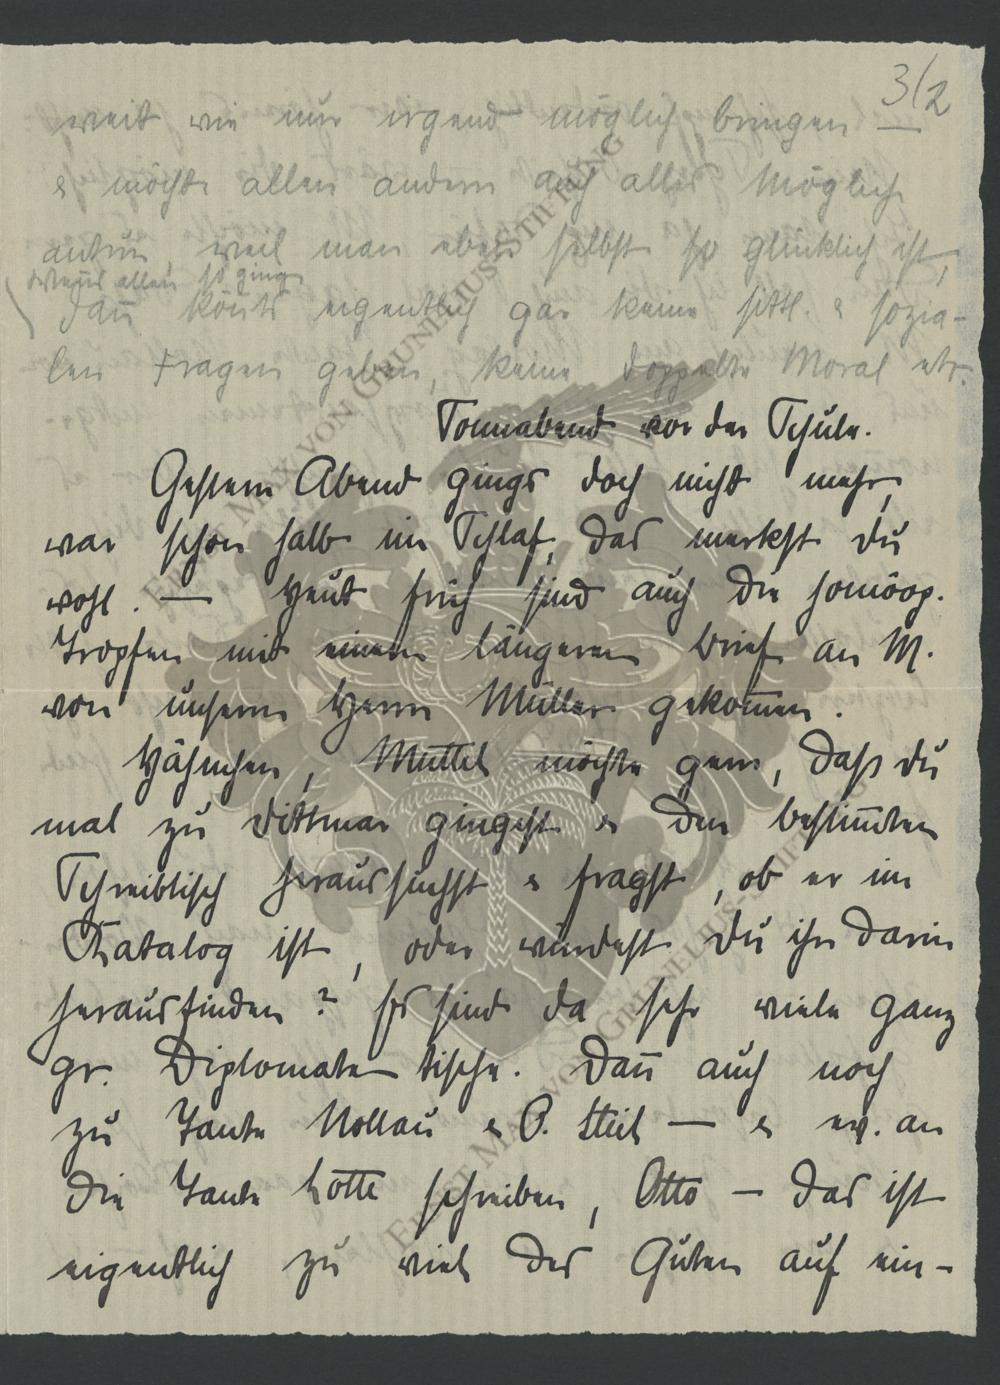 3/2
weit wie nur irgend möglich bringen —
& möcht allen andern auch alles Möglich
antun, weil man eben selbst so glücklich ist,
wenns allen so ging
dañ könts eigentlich gar keine sittl. & sozia-
len Fragen geben, keine doppelte Moral etc.
Sonnabend vor der Schule.
Gestern Abend gings doch nicht mehr,
war schon halb im Schlaf, das merkst du
wohl. — Heut früh sind auch die homöop.
Tropfen mit einem längeren Brief an M.
von unserm Herrn Müller gekom̄en.
Hähnchen, Muttel möchte gern, daß du
mal zu Dittmar gingest & den bestim̄ten
Schreibtisch heraussuchst & fragst, ob er im
Katalog ist, oder würdest du ihn darin
herausfinden? Es sind da sehr viele ganz
gr. Diplomatentische. Dañ auch noch
zu Tante Nollau & O. Steil — & ev. an
die Tante Lotte schreiben, Otto — das ist
eigentlich zu viel des Guten auf ein-